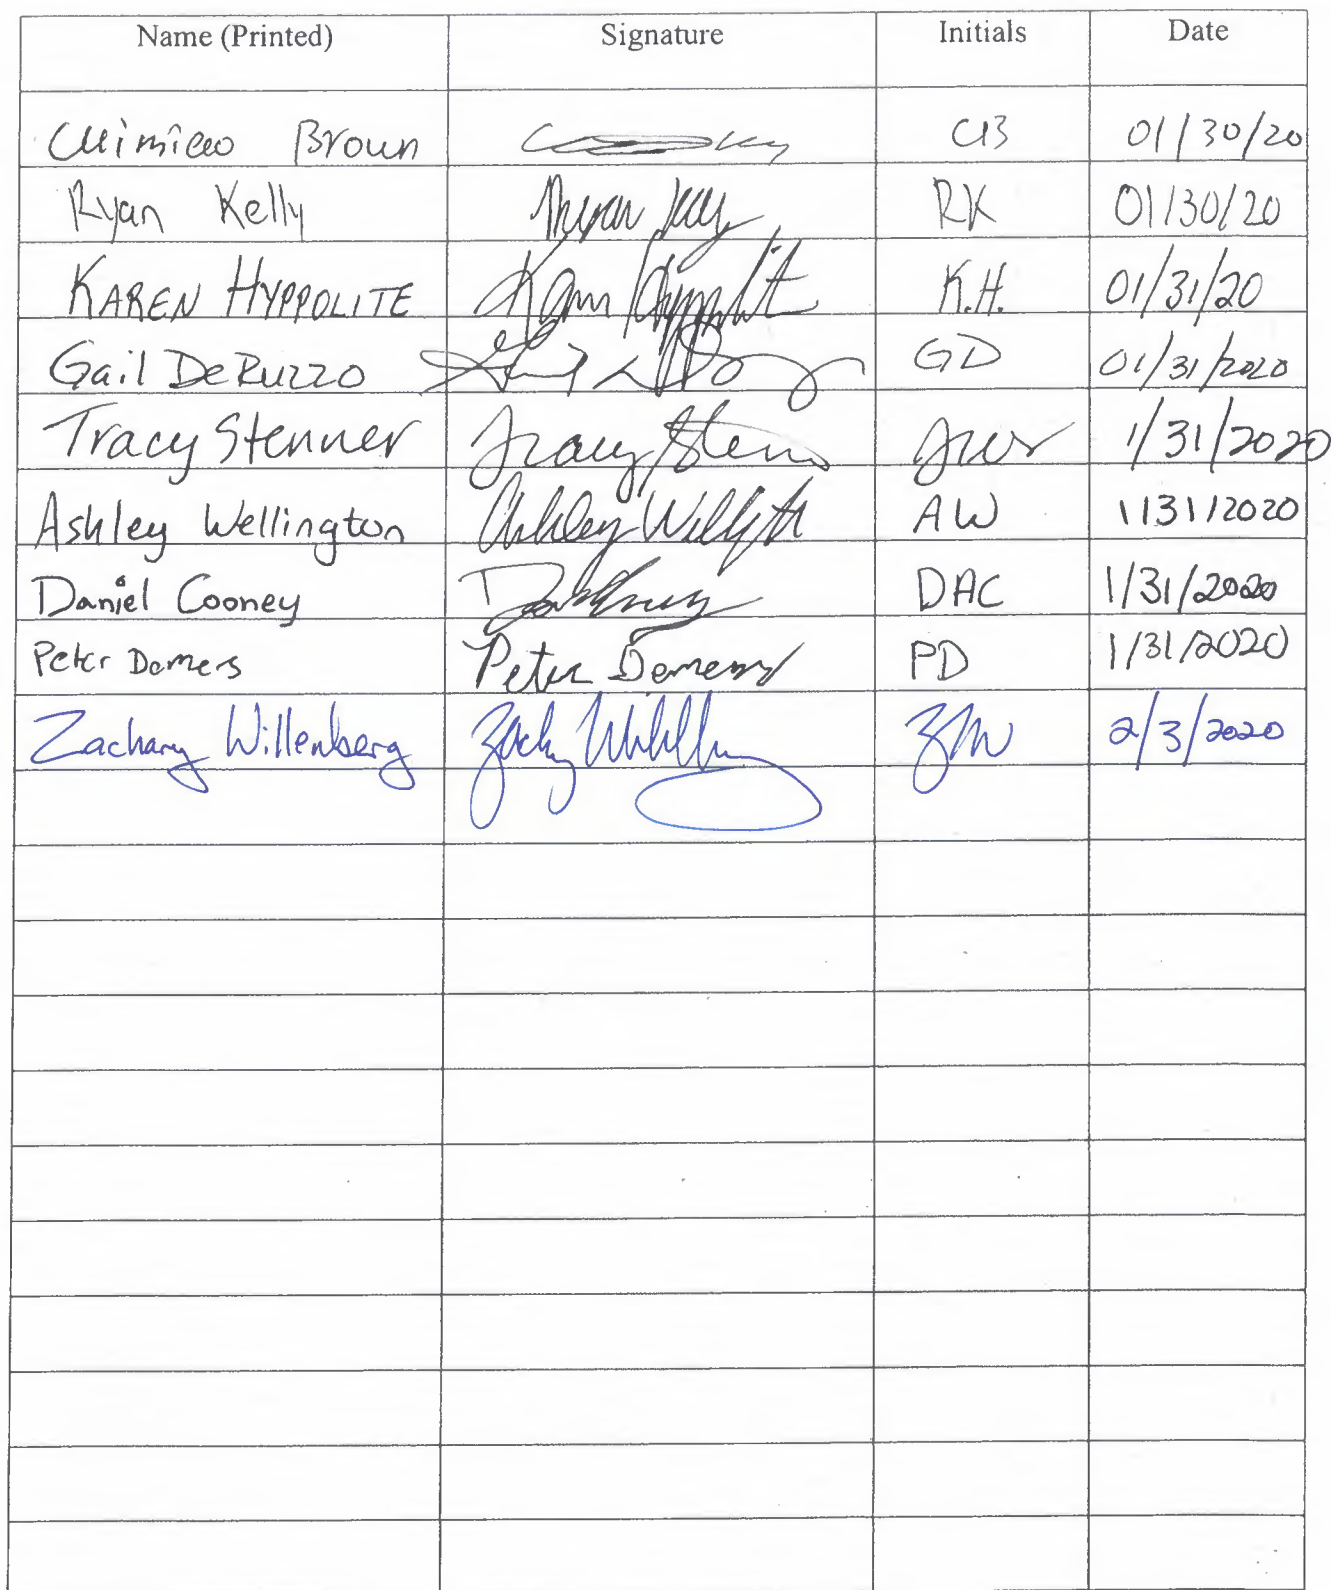 Name (Printed) Signature Initials Date
Brown CB 01/30/20
Ryan Kelly Ryan Kelly RK 01/30/20
KAREN HYPPOLITE Karen Hyppolite K.H. 01/31/20
Gail DeRuzzo GD 01/31/2020
Tracy Stenner Tracy Stenner 1/31/2020
Ashley Wellington Ashley Wellington AW 1/31/2020
Daniel Cooney DAC 1/31/2020
Peter Demers Peter Demers PD 1/31/2020
Zachary Willenberg ZMW 2/3/2020